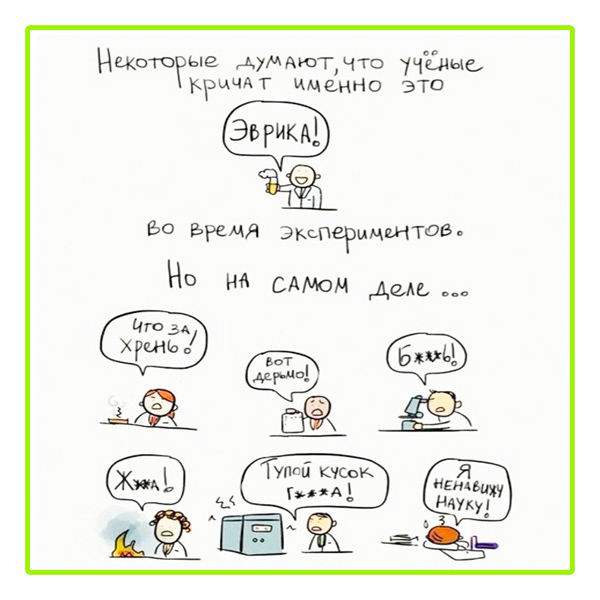 Некоторые думают, что учёные
кричат именно это
Эврика!
во время экспериментов.
Но на самом деле ...
Что за
хрень!
Вот
дерьмо!
Б***ь!
Ж**а!
Тупой кусок
г***а!
Я
ненавижу
науку!